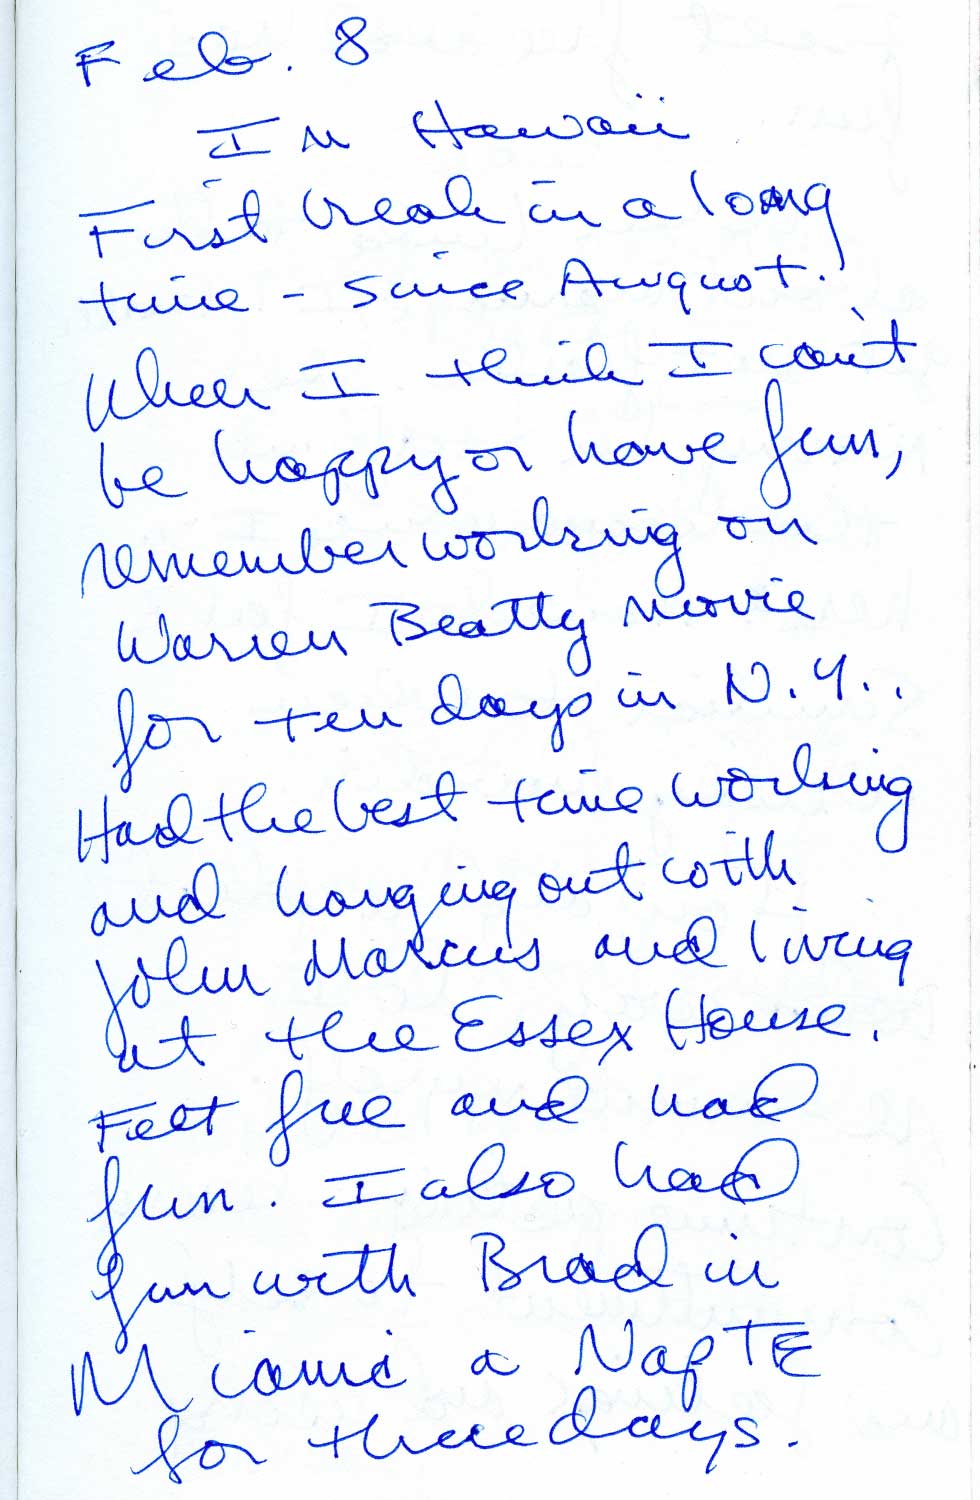 Feb. 8
In Hawaii
First break in a long
time - since August.
When I think I can't
be happy or have fun,
remember working on
Warren Beatty movie
for ten days in N.Y..
Had the best time working
and hanging out with
John Marcus and living
at the Essex House.
Felt free and had
fun. I also had
fun with Brad in
Miami a NapTE
for three days.